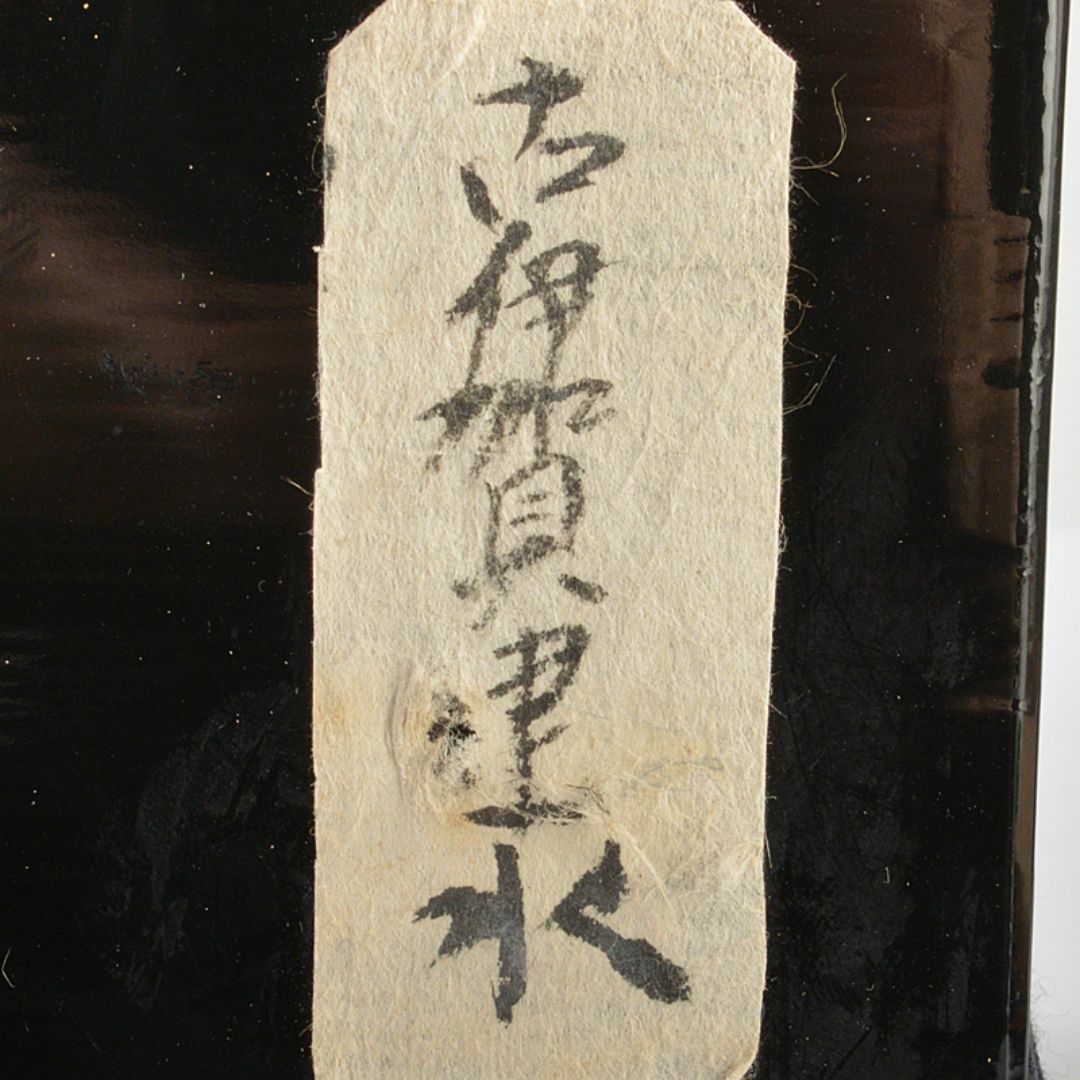 古伊賀建水